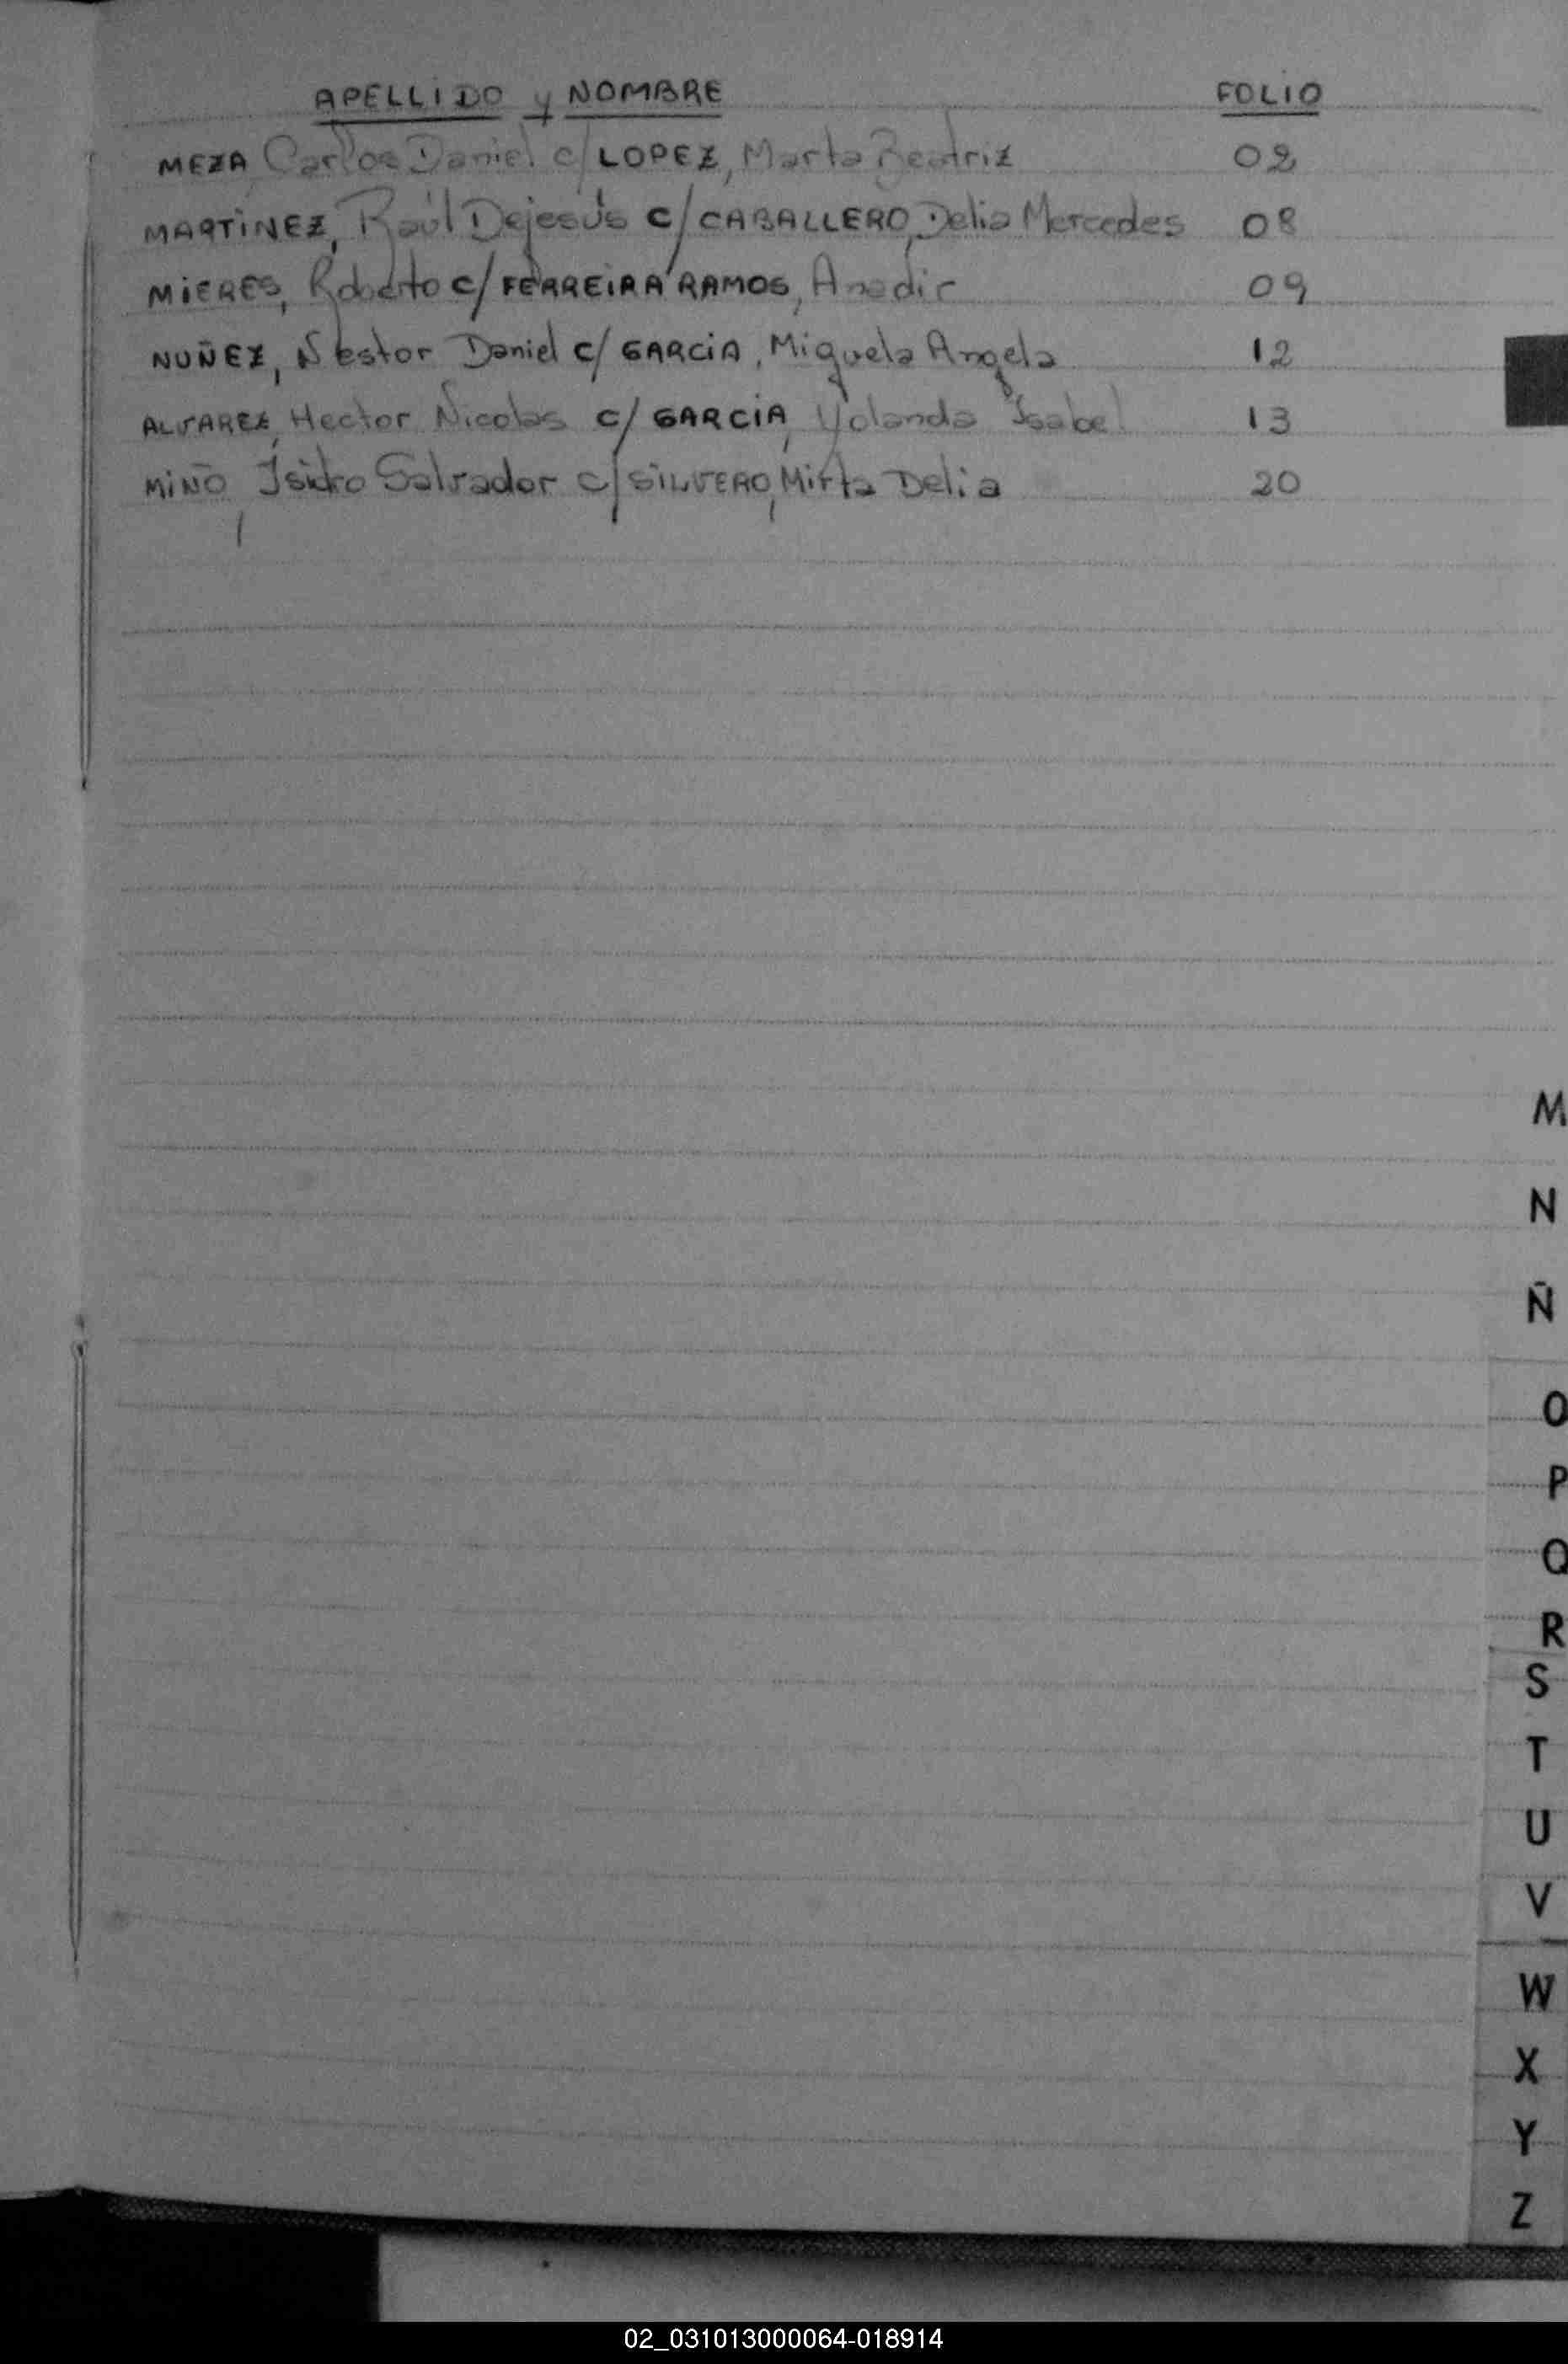 APELLIDO y NOMBRE FOLIO
MEZA Carlos Daniel c/ LOPEZ, Marta Beatriz 02
MARTINEZ, Raúl Dejesús c/ CABALLERO, Delia Mercedes 08
MIERES, Roberto c/ FERREIRA RAMOS, Anedir 09
NUÑEZ, Nestor Daniel c/ GARCIA, Miguela Angela 12
ALVAREZ, Hector Nicolas c/ GARCIA, Yolanda Isabel 13
MIÑO, Isidro Salvador c/ SILVERO, Mirta Delia 20
M
N
Ñ
O
P
Q
R
S
T
U
V
W
X
Y
Z
02_031013000064-018914